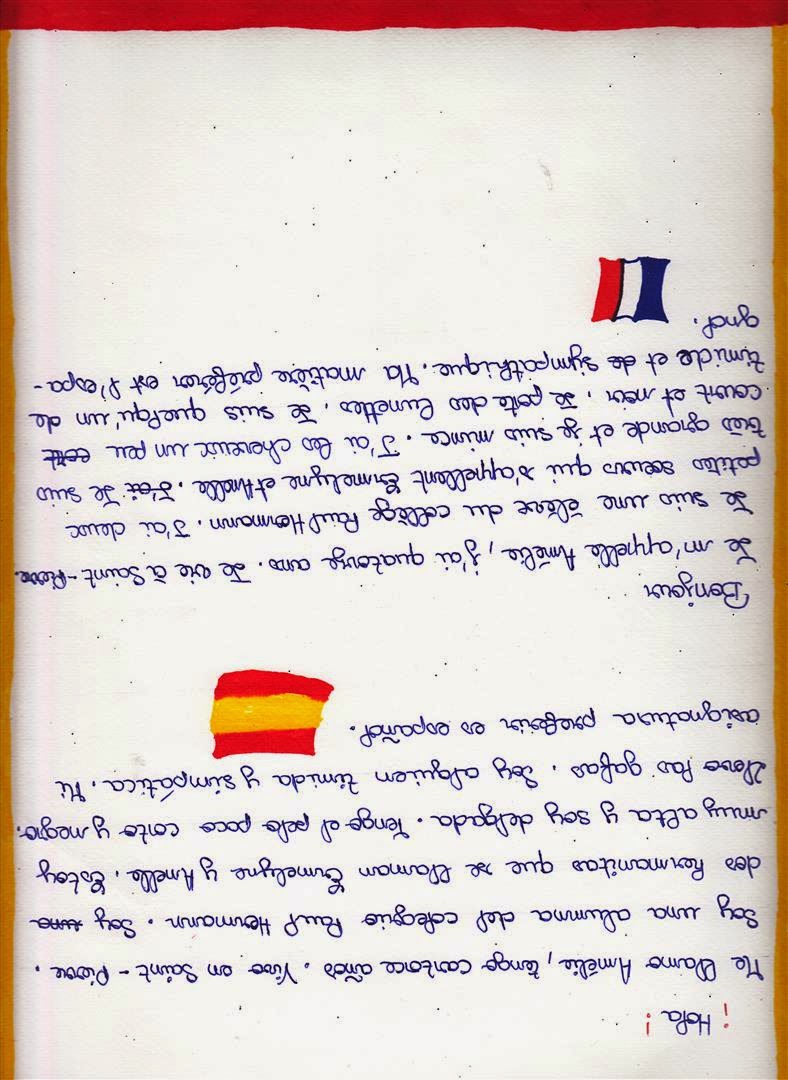 ¡ Hola !
Me llamo Amélie, tengo cantorce años. Vivo en Saint-Pierre.
Soy una alumna del colegio Paul Hermann. Soy una
dos hermanitas que se llaman Ermelyne y Anelle. Estoy
muy alta y soy delgada. Tengo el pelo poco corto y negro.
Llevo las gafas. Soy alguien timida y simpática. Mi
asignatura preferir es español.
Bonjour
Je m'appelle Amélie, j'ai quatorze ans. Je vie à Saint-Pierre.
Je suis une élève du collège Paul Hermann. J'ai deux
petites soeurs qui s'appellent Ermelyne et Anelle. J'ai Je suis
très grande et je suis mince. J'ai les cheveux un peu
court et noir. Je porte des lunettes. Je suis quelqu'un de
timide et de sympathique. Ma matière préférer est l'espa-
gnol.